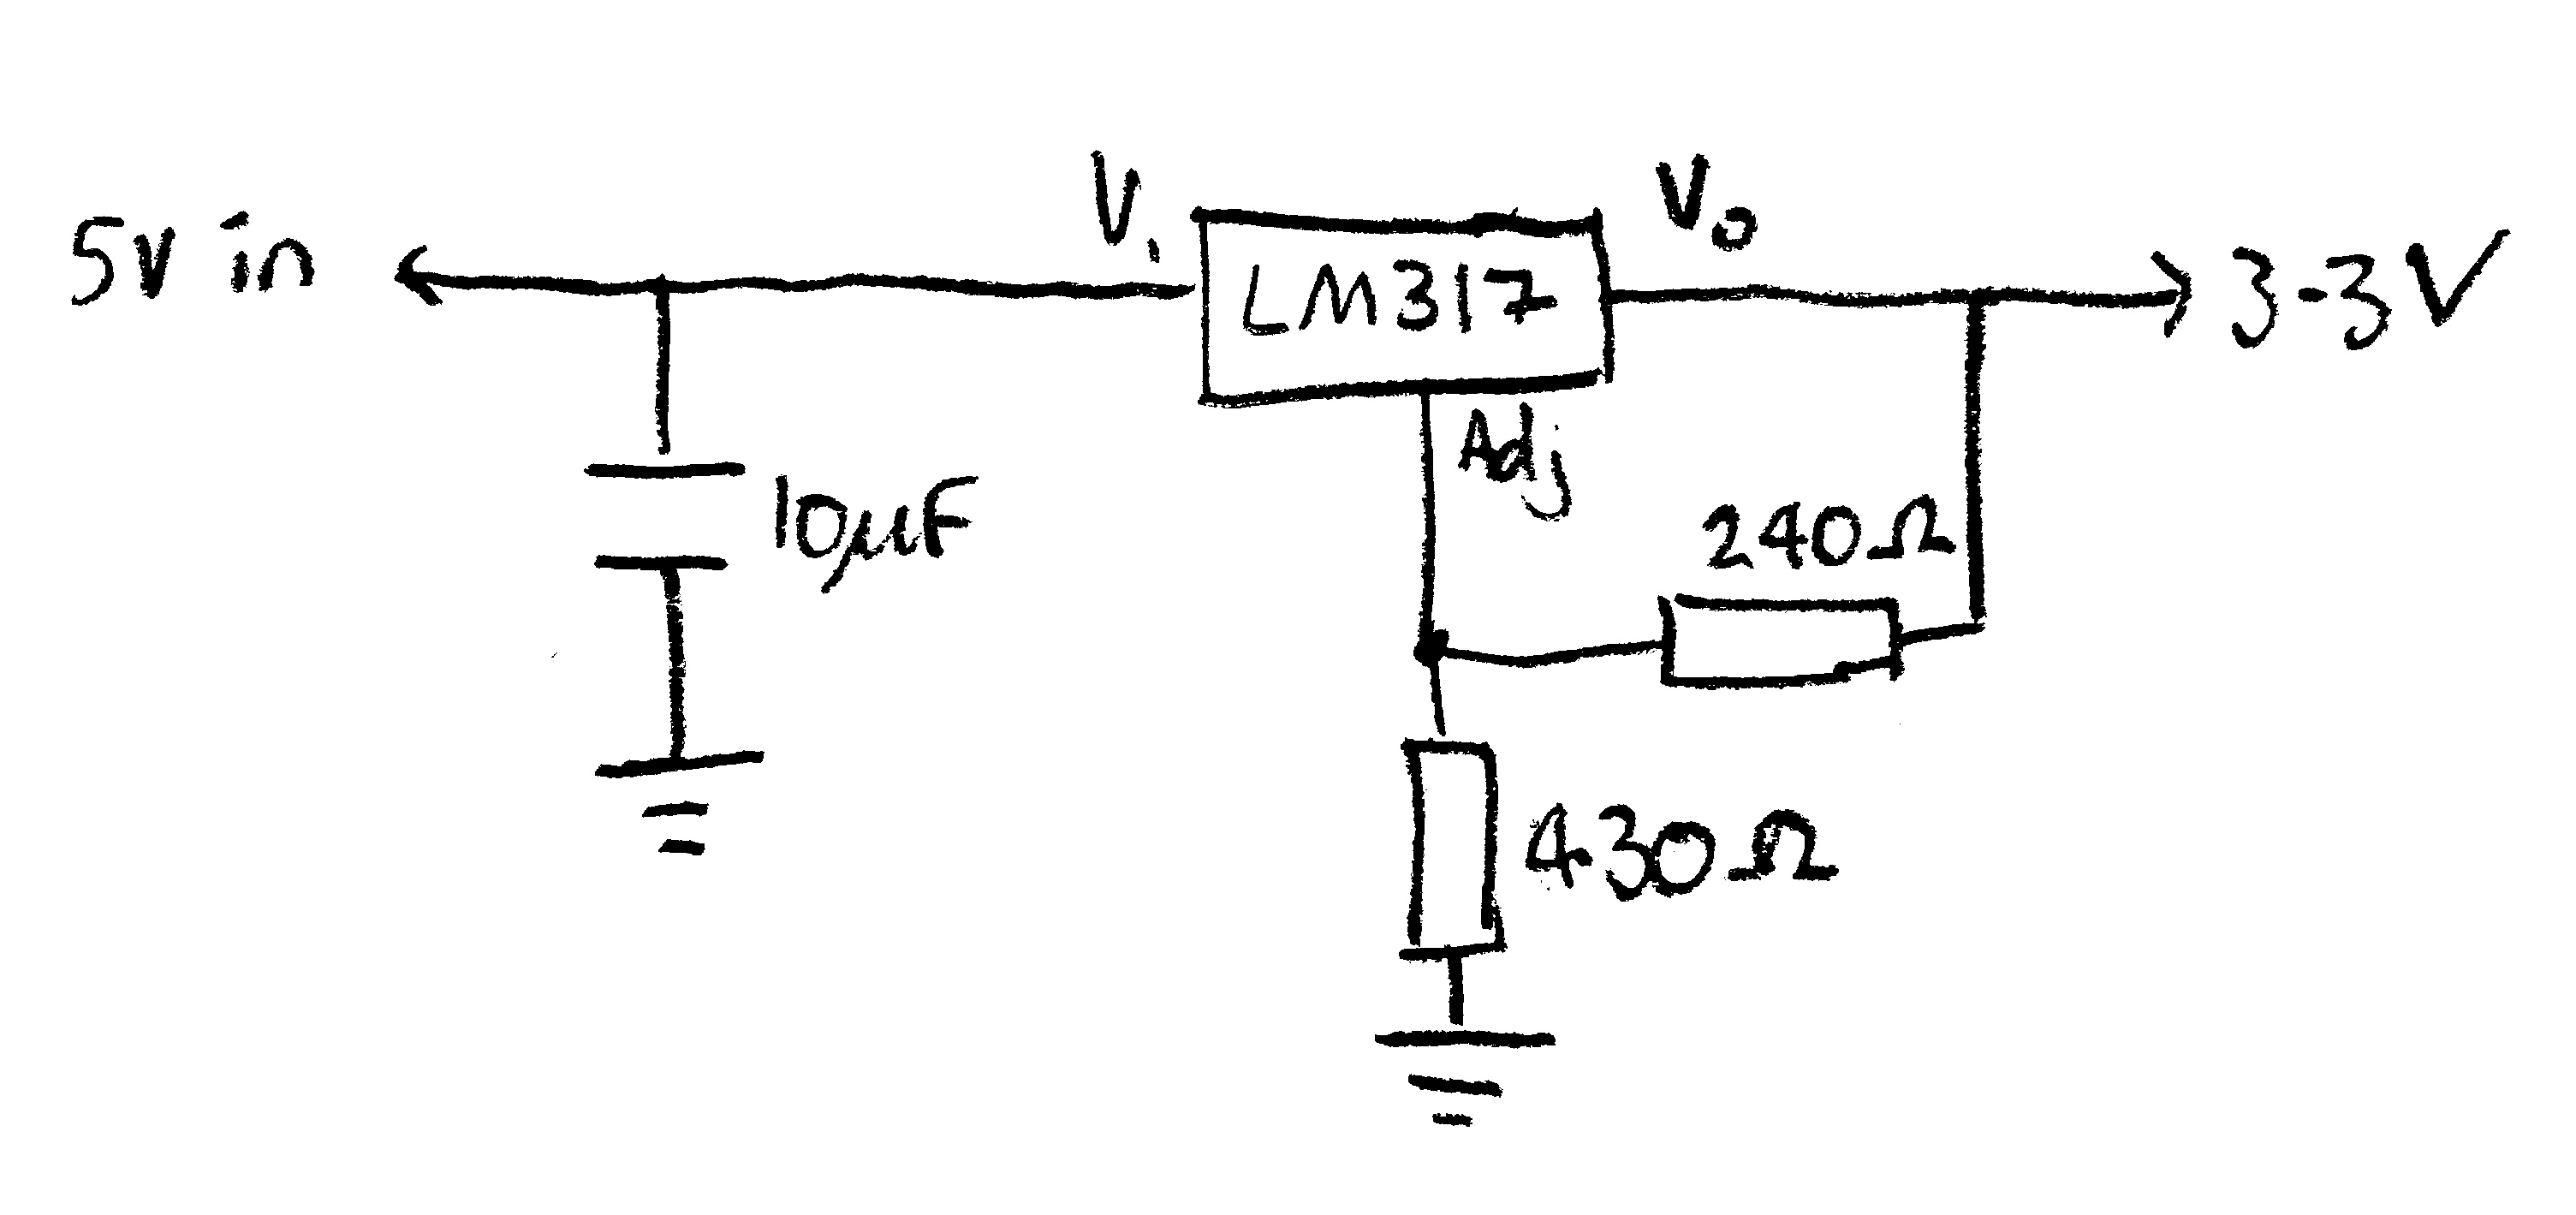 5V in
Vi
LM317
Vo
3-3V
Adj
10µF
240Ω
430Ω